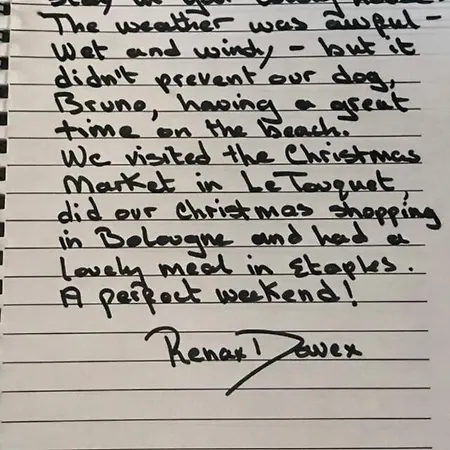 stay in your lovely house.
The weather was awful –
Wet and windy – but it
didn't prevent our dog,
Bruno, having a great
time on the beach.
We visited the Christmas
Market in Le Touquet,
did our Christmas shopping
in Bolougne and had a
lovely meal in Etaples.
A perfect weekend!